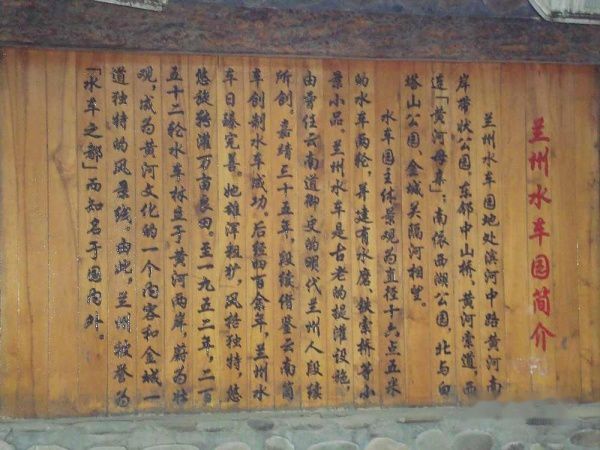 兰州水车园简介
兰州水车园地处滨河中路黄河南
岸带状公园，东邻中山桥、黄河索道，西
连「黄河母亲」；南依西湖公园，北与白
塔山公园、金城关隔河相望。
水车园主体景观为直径十六点五米
的水车两轮，并建有水磨、铁索桥等小
景小品。兰州水车是古老的提灌设施，
由曾任云南道御史的明代兰州人段续
所创。嘉靖三十五年，段续借鉴云南筒
车创制水车成功。后经四百余年，兰州水
车日臻完善。她雄浑粗犷，风格独特，悠
悠旋转灌万亩良田。至一九五二年，二百
五十二轮水车林立于黄河两岸，蔚为壮
观，成为黄河文化的一个内容和金城一
道独特的风景线。由此，兰州被誉为
「水车之都」而知名于国内外。